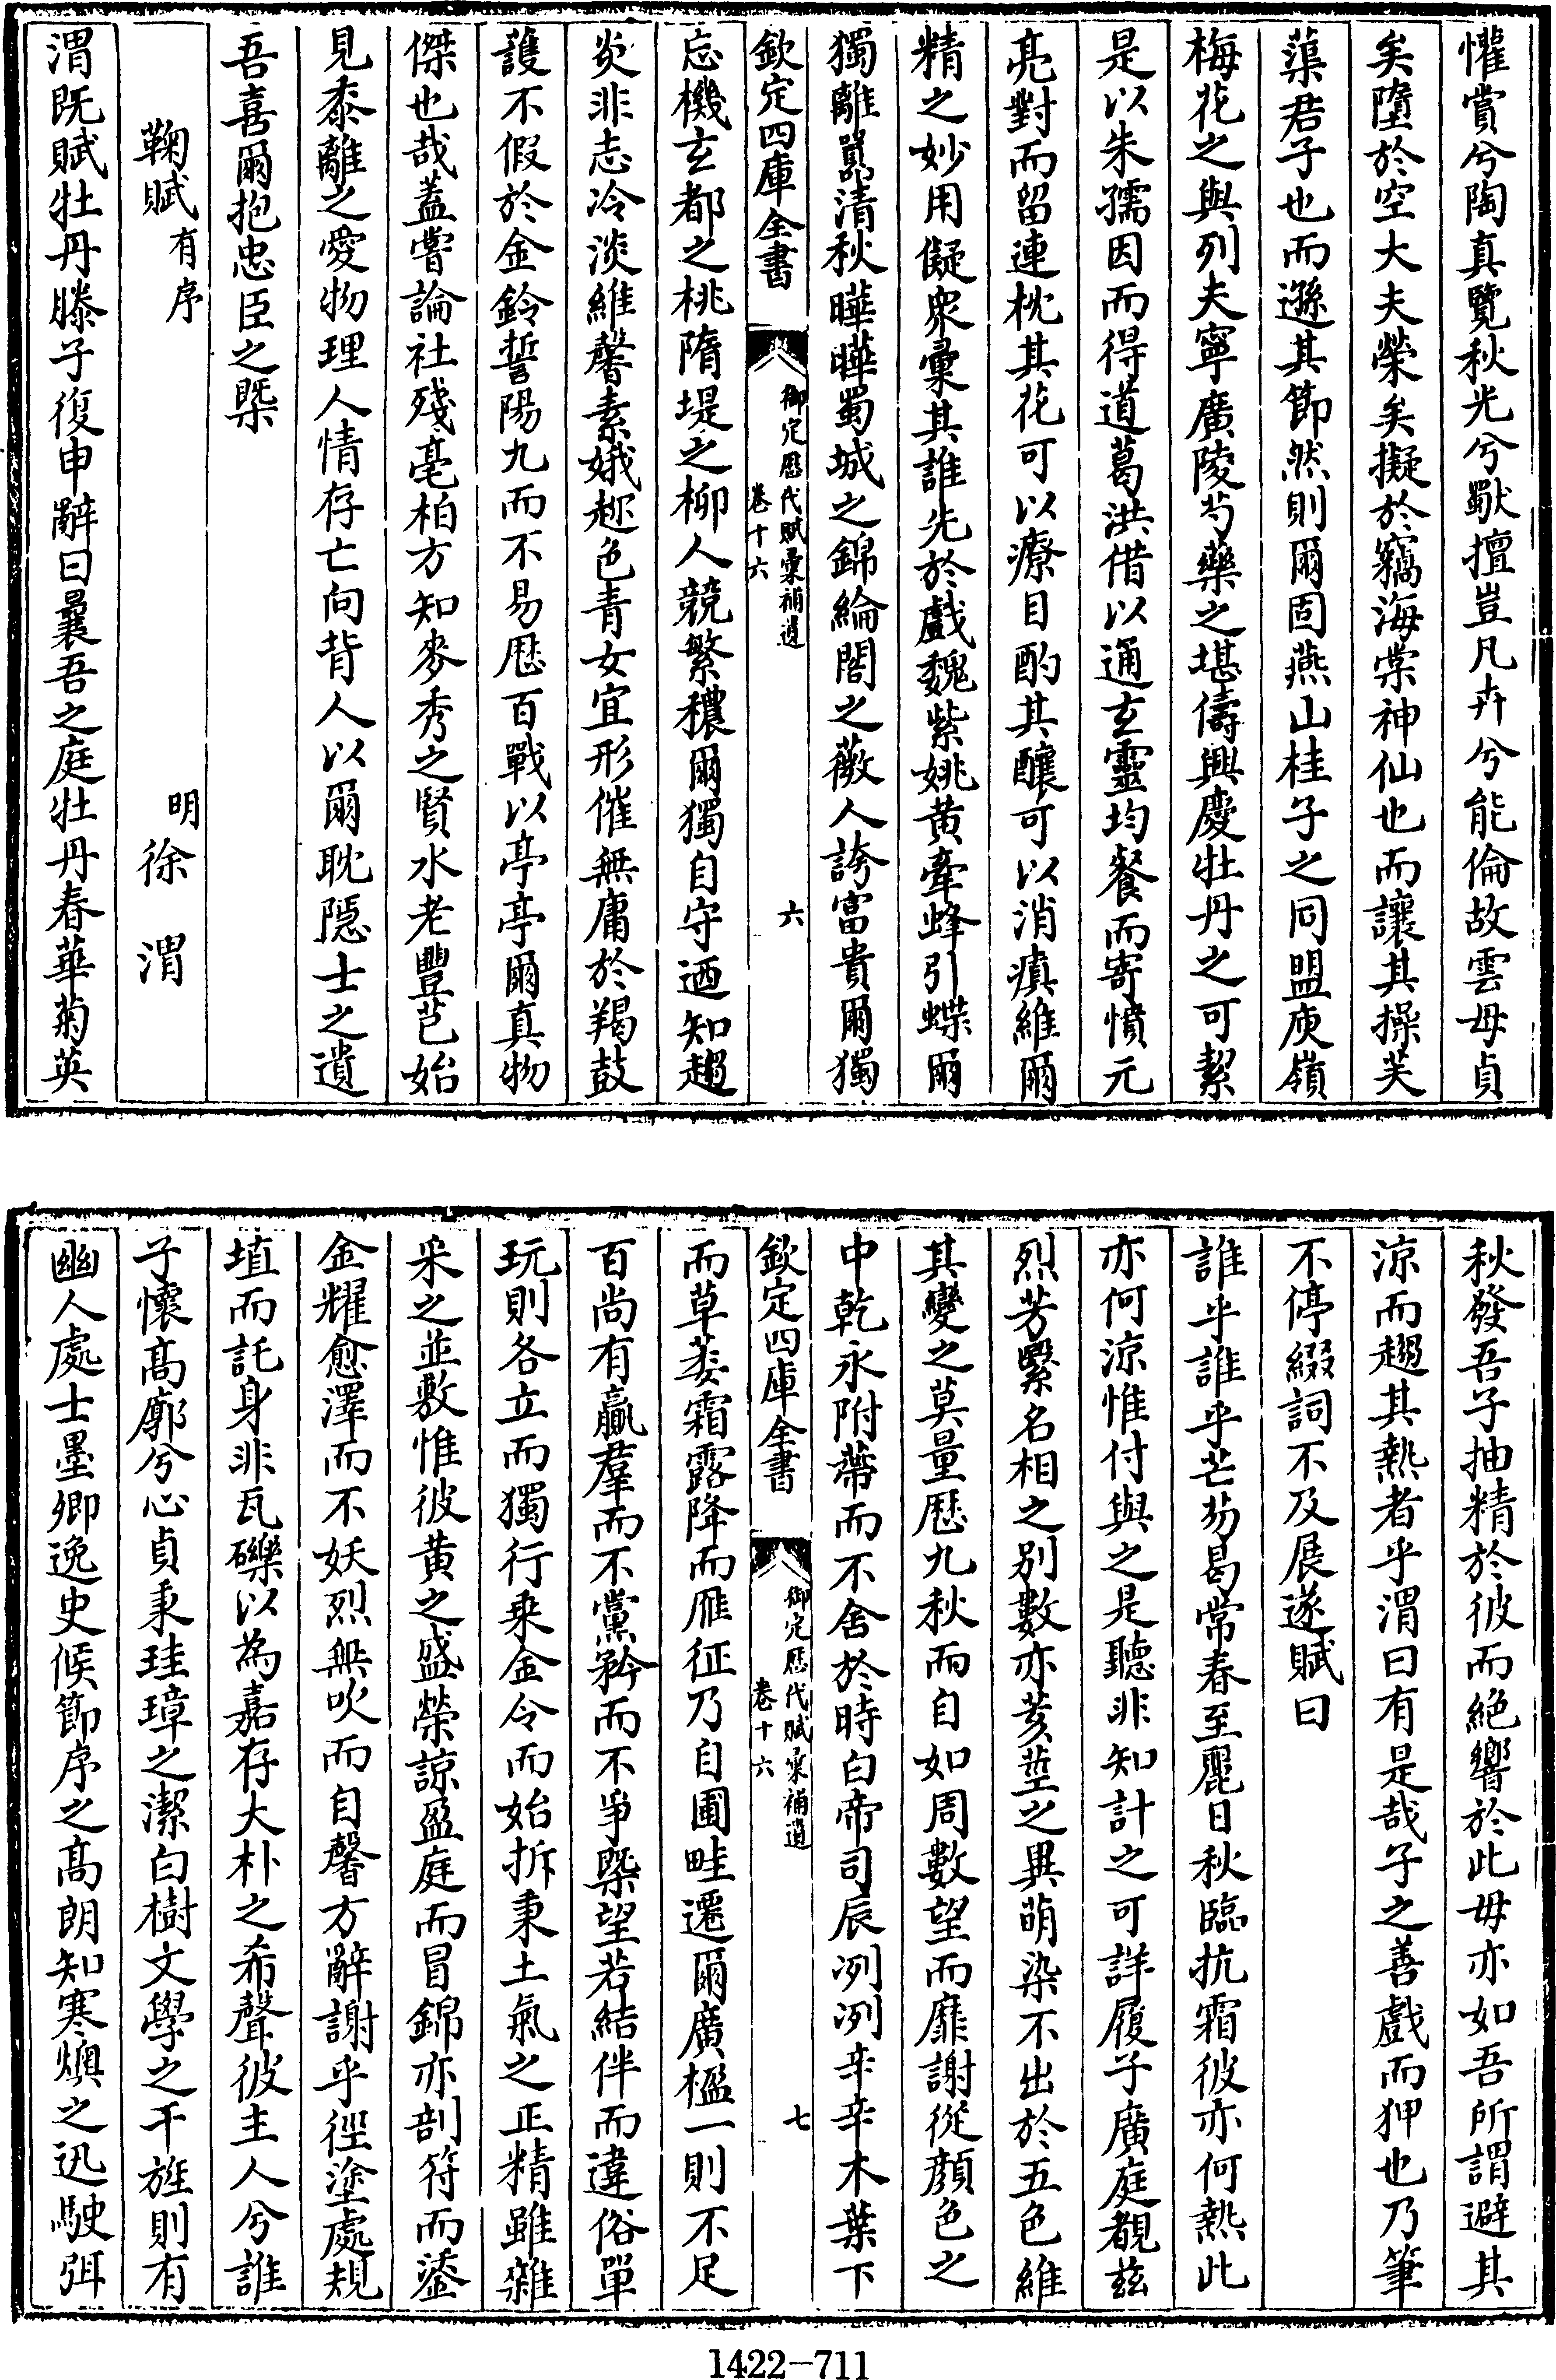 懽賞兮陶真覽秋光兮獸擅豈凡卉兮能倫故雲毋貞
矣墮於空大夫榮矣擬於竊海棠神仙也而讓其操芙
蕖君子也而遜其節然則爾固燕山桂子之同盟庾嶺
梅花之與列夫寧廣陵芍藥之堪儔興慶牡丹之可絜
是以朱孺因而得道葛洪借以通玄靈均餐而寄憤元
亮對而留連枕其花可以療目酌其釀可以消瘨維爾
精之妙用儗衆彚其誰先於戲魏紫姚黄牽蜂引蝶爾
獨離嚣清秋曄曄蜀城之錦綸閣之薇人誇富貴爾獨
欽定四庫全書
御定歴代賦彚補遺
卷十六
六
忘機玄都之桃隋堤之柳人競繁穠爾獨自守迺知趨
炎非志冷淡維馨素娥趂色青女宜形催無庸於羯鼓
護不假於金鈴誓陽九而不易歴百戰以亭亭爾真物
傑也哉蓋嘗論社殘亳柏方知麥秀之賢水老豐芑始
見黍離之愛物理人情存亡向背人以爾耽隠士之遺
吾喜爾抱忠臣之槩
鞠賦有序
明徐渭
渭既賦牡丹滕子復申辭曰曩吾之庭牡丹春華菊英
秋發吾子抽精於彼而絶響於此毋亦如吾所謂避其
涼而趨其熱者乎渭曰有是哉子之善戲而狎也乃筆
不停綴詞不及展遂賦曰
誰乎誰乎芒芴曷常春至麗日秋臨抗霜彼亦何熱此
亦何涼惟付與之是聽非知計之可詳履子廣庭覩兹
烈芳緊名相之别數亦荄莖之異萌染不出於五色維
其變之莫量歴九秋而自如周數望而靡謝從顔色之
中乾永附蔕而不舍於時白帝司辰冽冽辛辛木葉下
欽定四庫全書
御定歴代賦彚補遺
卷十六
七
而草萎霜露降而雁征乃自圃畦遷爾廣楹一則不足
百尚有贏羣而不黨矜而不爭槩望若結伴而違俗單
玩則各立而獨行乗金令而始拆秉土氣之正精雖雜
采之並敷惟彼黄之盛榮諒盈庭而冒錦亦剖符而鎏
金耀愈澤而不妖烈無吹而自馨方辭謝乎徑塗處規
埴而託身非瓦礫以為嘉存大朴之希聲彼主人兮誰
子懷髙廓兮心貞秉珪璋之潔白樹文學之干旌則有
幽人處士墨卿逸史候節序之髙朗知寒燠之迅駛弭
1422—711